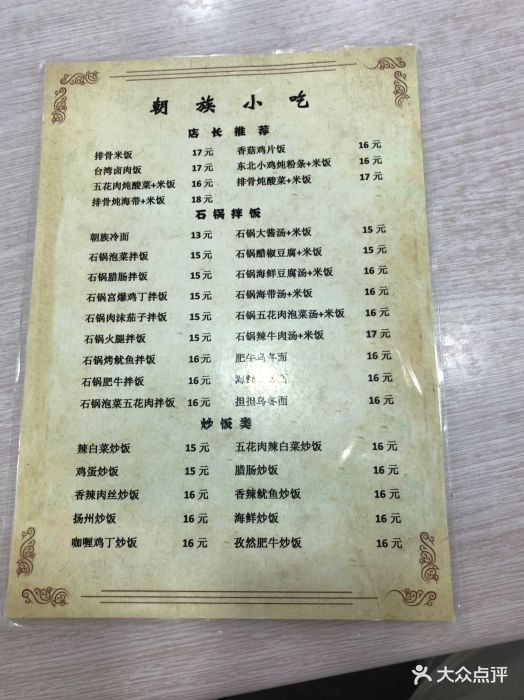 朝族小吃
店长推荐
排骨米饭 17元 香菇鸡片饭 16元
台湾卤肉饭 17元 东北小鸡炖粉条+米饭 16元
五花肉炖酸菜+米饭 16元 排骨炖酸菜+米饭 17元
排骨炖海带+米饭 18元
石锅拌饭
朝族冷面 13元 石锅大酱汤+米饭 15元
石锅泡菜拌饭 15元 石锅醋椒豆腐+米饭 15元
石锅腊肠拌饭 15元 石锅海鲜豆腐汤+米饭 16元
石锅宫爆鸡丁拌饭 15元 石锅海带汤+米饭 16元
石锅肉沫茄子拌饭 15元 石锅五花肉泡菜汤+米饭 16元
石锅火腿拌饭 15元 石锅辣牛肉汤+米饭 17元
石锅烤鱿鱼拌饭 16元 肥牛乌冬面 16元
石锅肥牛拌饭 16元 海鲜 面 16元
石锅泡菜五花肉拌饭 16元 担担乌冬面 16元
炒饭类
辣白菜炒饭 15元 五花肉辣白菜炒饭 16元
鸡蛋炒饭 15元 腊肠炒饭 16元
香辣肉丝炒饭 16元 香辣鱿鱼炒饭 16元
扬州炒饭 16元 海鲜炒饭 16元
咖喱鸡丁炒饭 16元 孜然肥牛炒饭 16元
大众点评